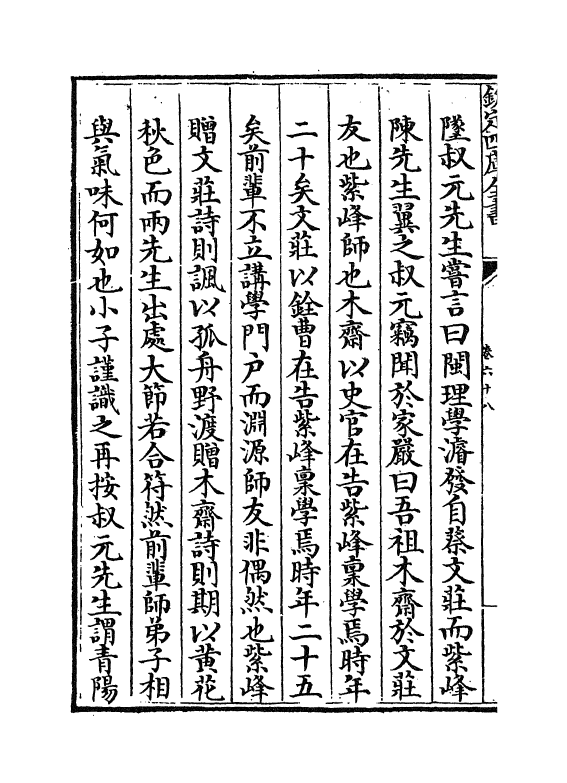 欽定四庫全書
卷六十八
墜叔元先生嘗言曰閩理學濬發自蔡文莊而紫峰
陳先生翼之叔元竊聞於家嚴曰吾祖木齋於文莊
友也紫峰師也木齋以史官在告紫峰稟學焉時年
二十矣文莊以銓曹在告紫峰稟學焉時年二十五
矣前輩不立講學門户而淵源師友非偶然也紫峰
贈文莊詩則諷以孤舟野渡贈木齋詩則期以黄花
秋色而兩先生出處大節若合符然前輩師弟子相
與氣味何如也小子謹識之再按叔元先生謂青陽